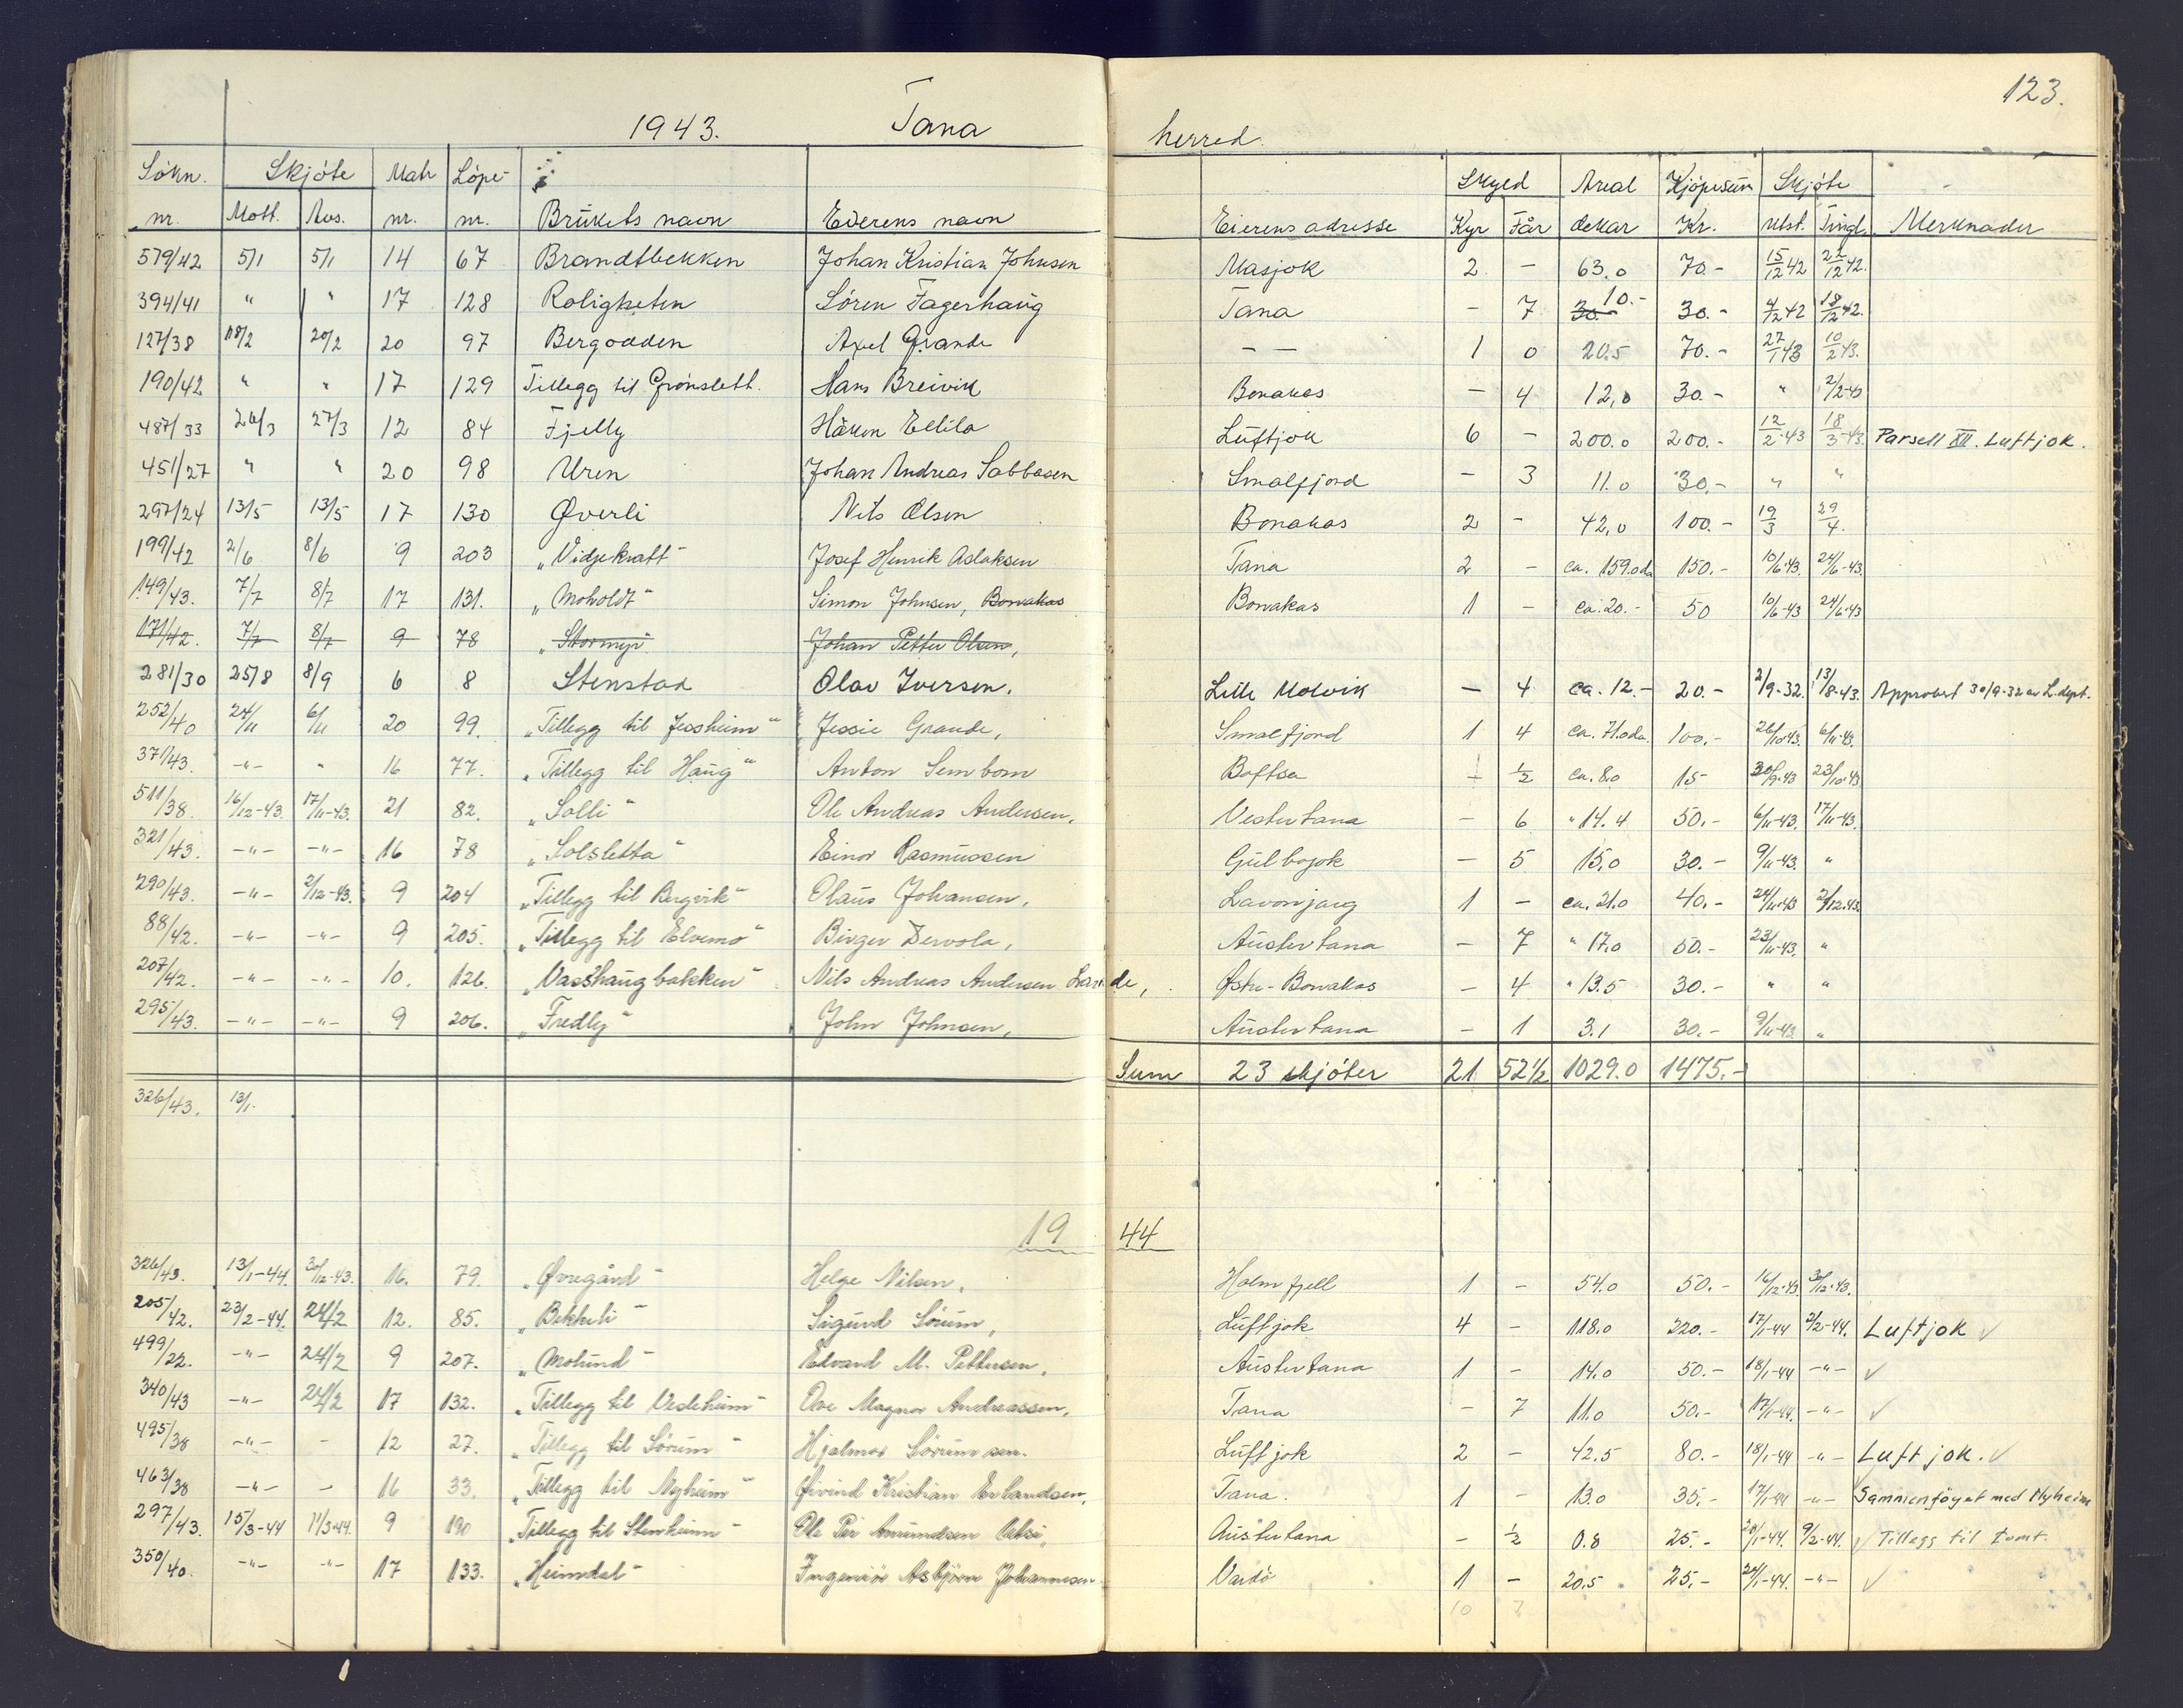 123.
1943. Tana herred.
Søkn. Skjøte Matr Løpe- Skyld Areal Kjøpesum Skjøte
nr. Mott. Avs. nr. nr. Brukets navn Eierens navn Eierens adresse Kyr Får dekar Kr. Utst. Tingl. Merknader
579/42 5/1 5/1 14 67 Brandtbekken Johan Kristian Johnsen Masjok 2 — 63.0 70.- 15/12 42 22/12 42.
394/41 " " 17 128 Roligheten Sören Fagerhaug Tana — 7 30.- 10.- 30.- 4/12 42 18/12 42.
127/38 18/2 20/2 20 97 Bergodden Axel Grande — — 1 0 20.5 70.- 27/1 43 10/2 43.
190/42 " " 17 129 Tillegg til Grønslett. Hans Breivik Bonakas — 4 12,0 30.- " 2/2-43
487/33 26/3 27/3 12 84 Fjelly Håkon Eelila Luftjok 6 — 200.0 200.- 12/2-43 18/3-43. Parsell XII. Luftjok.
451/27 " " 20 98 Uren Johan Andreas Sabbasen Smalfjord — 3 11.0 30.- " "
297/24 13/5 13/5 17 130 Øverli Nils Olsen Bonakas 2 - 42,0 100.- 19/3 29/4.
199/42 2/6 8/6 9 203 „Vidjekratt" Josef Henrik Aslaksen Tana 2 - ca. 159.0da 150.- 10/6-43. 24/6-43.
149/43. 7/7 8/7 17 131. „Moholdt" Simon Johnsen, Bonakas Bonakas 1 - ca. 20.- 50 10/6-43 24/6-43
171/42. 7/7 8/7 9 78 „Stormyr" Johan Petter Olsen,
281/30 25/8 8/9 6 8 Stenstad Olav Iversen. Lille Molvik — 4 ca. 12.- 20.- 2/9-32. 13/8-43. Approbert 30/9-32 av L.dept.
252/40 24/11 6/11 20 99. „Tillegg til Jessheim" Jessie Grande, Smalfjord 1 4 ca. 71.0da. 100.- 26/10-43. 6/11-43.
371/43. -"- " 16 77. „Tillegg til Haug" Anton Semborn Boftsa - 1/2 ca. 8.0 15- 30/9-43 23/10-43
511/38. 16/12-43. 17/11-43. 21 82. „Solli" Ole Andreas Andersen. Vestertana - 6 " 14.4 50.- 6/11-43. 17/11-43.
321/43. -"- -"- 16 78 „Solsletta" Einar Rasmussen Gulbojok — 5 15,0 30.- 9/11-43. "
290/43. -"- 2/12-43. 9 204 „Tillegg til Bergvik" Olaus Johansen, Lavonjarg 1 - ca. 21.0 40.- 24/11-43 2/12-43.
88/42. -"- -"- 9 205. „Tillegg til Elvemo" Birger Dervola, Austertana — 7 " 17.0 50.- 23/11-43. "
207/42. -"- -"- 10. 126. „Vasshaugbakken" Nils Andreas Andersen Lande, Østre-Bonakas — 4 " 13.5 30.- " "
295/43. -"- -"- 9 206. „Fredly" John Johnsen, Austertana - 1 3.1 30.- 9/11-43. "
Sum 23 skjöter 21 52 1/2 1029.0 1475.-
326/43. 13/1.
1944
326/43. 13/1-44. 30/12-43. 16. 79. „Øvregård" Helge Nilsen, Holmfjell 1 - 54.0 50.- 16/12-43. 30/12-43.
205/42. 23/2-44. 24/2 12. 85. „Bekkeli" Sigurd Sörum, Luftjok 4 - 118.0 220.- 17/1-44 2/2-44. Luftjok ✓
499/22. -"- 24/2 9 207. „Molund" Edvard M. Pettersen, Austertana 1 - 14.0 50.- 18/1-44 -"- ✓
340/43 -"- 24/2 17 132. „Tillegg til Vesleheim" Ove Magnar Andreassen, Tana - 7 11.0 50.- 17/1-44. -"- ✓
495/38 -"- - 12 27. „Tillegg til Sørum" Hjalmar Sørum sen. Luftjok 2 - 42.5 80.- 18/1-44 -"- Luftjok. ✓
463/38 -"- - 16 33. „Tillegg til Nyheim" Øivind Kristian Erlandsen, Tana. 1 - 13.0 35.- 17/1-44 -"- Sammenføyet med Nyheim
297/43. 15/3-44 11/3-44. 9 190 „Tillegg til Stenheim" Ole Per Amundsen Austertana - 1/2 0.8 25.- 20/1-44. 9/2-44. ✓ Tillegg til tomt.
350/40. -"- -"- 17 133. „Heimdal" Ingeniør Asbjørn Johannesen Vardø 1 - 20,5 25.- 24/1-44. -"- ✓
10 7